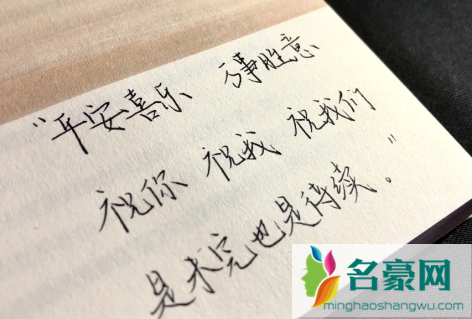 “平安喜乐 万事胜意
祝你 祝我 祝我们
是未完也是待续。”
名豪网
minghaoshangwu.com